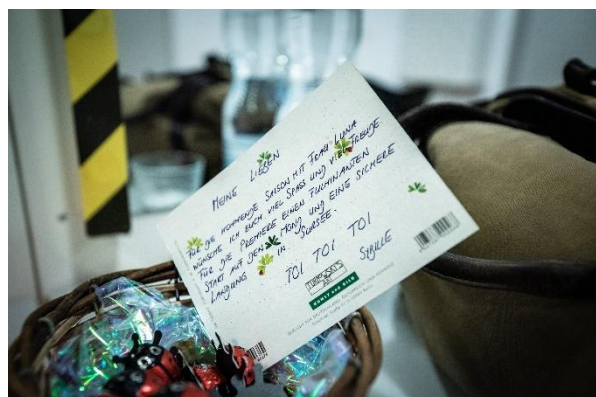 MEINE LIEBEN
FÜR DIE KOMMENDE SAISON MIT FRAU LUNA
WÜNSCHE ICH EUCH VIEL SPASS UND VIEL FREUDE.
FÜR DIE PREMIERE EINEN FULMINANTEN
START AUF DEN MOND UND EINE SICHERE
LANDUNG IN SURSEE.
TOI TOI TOI
SIBILLE
KUNST UND BILD